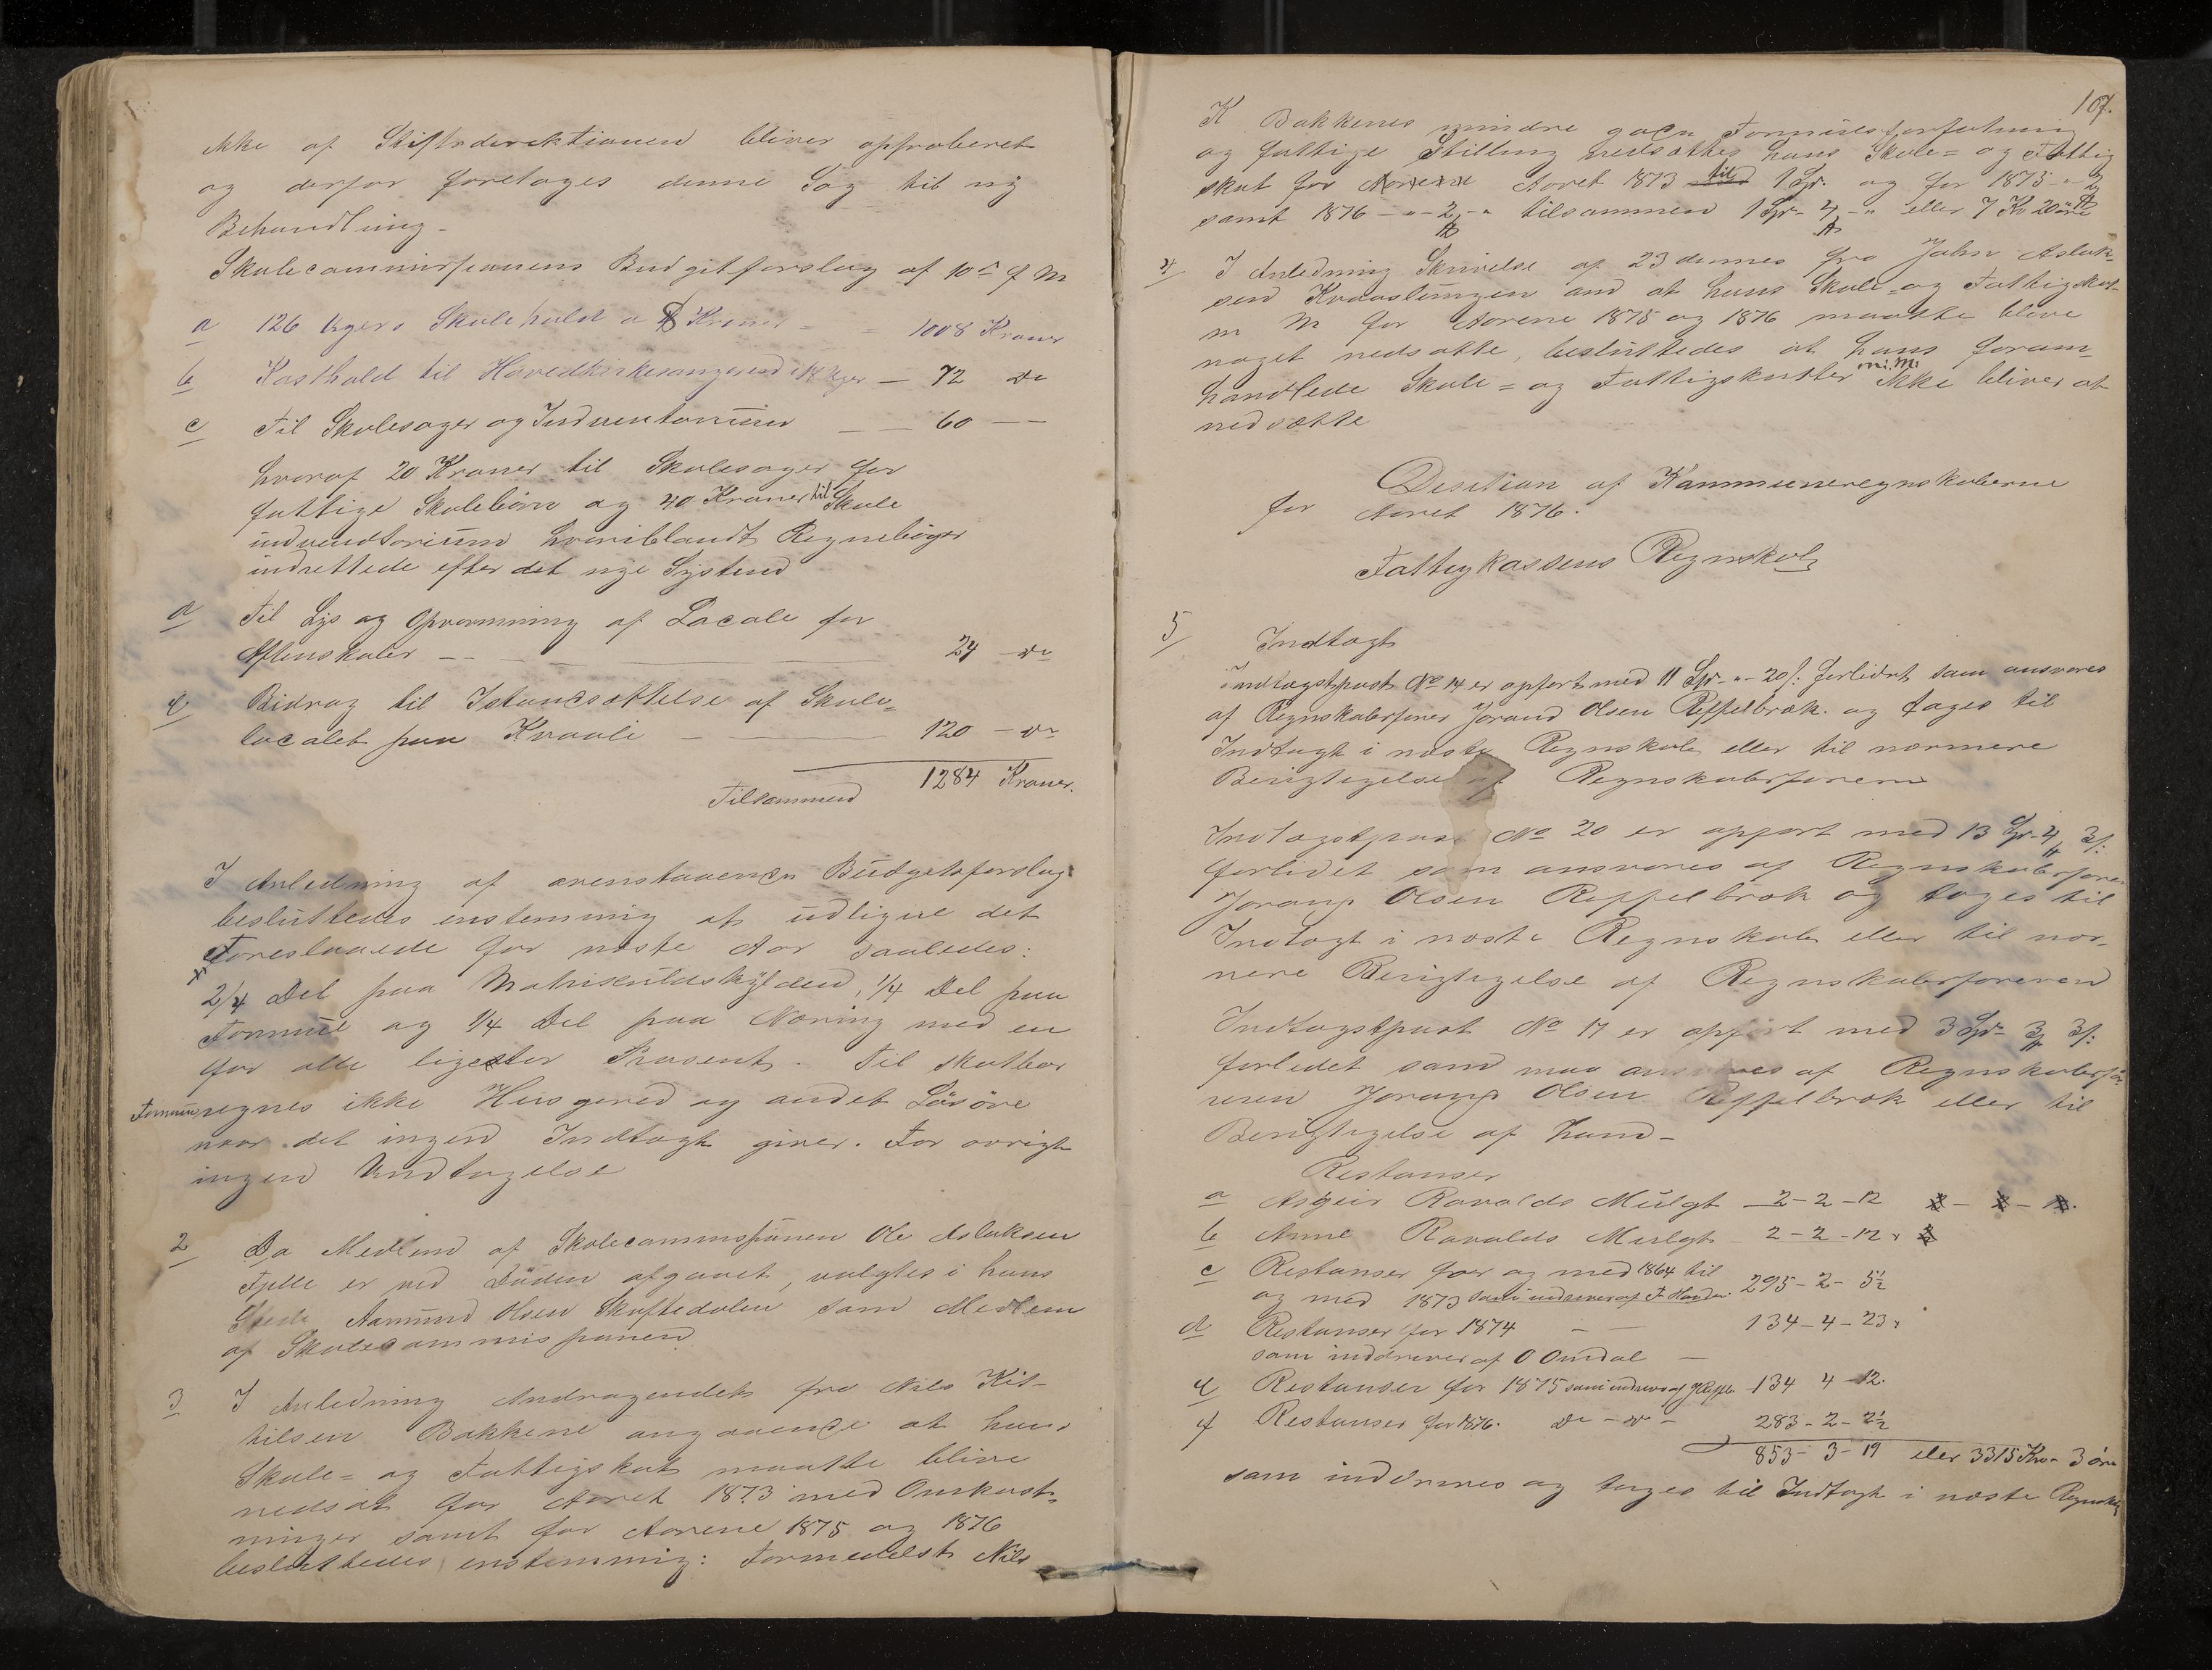 ikke af Stiftsdirektionen bliver approberet
og derfor foretages denne Sag til ny
Behandling.
Skolecommissionens Budgetforslag af 10de f M
a 126 Ugers Skolehold a 8 Kroner = = 1008 Kroner
b Kosthold til Hovedkirkesangeren i 14 Uger — 72 do
c Til Skolesager og Indventarium — — 60 — —
hvoraf 20 Kroner til Skolesager for
fattige Skolebörn og 40 Kroner til Skole
indventarium hvoriblandt Regneböger
indrettede efter det nye System
d Til Lys og Opvarmning af Locale for
Aftenskoler — — 24 — do
e Bidrag til Istandsættelse af Skole-
localet paa Kraali — 120 — do
Tilsammen 1284 Kroner.
I Anledning af ovenstaaende Budgetsforslag
besluttedes enstemmig at udligne det
Foreslaaede for næste Aar saaledes:
2/4 Del paa Matrikulskylden, 1/4 Del paa
Formue og 1/4 Del paa Næring med en
for alle ligestor Prosent. Til skatbar
Formue regnes ikke Husgeraad og andet Lösöre
naar det ingen Indtægt giver. For övrigt
ingen Undtagelse
2 Da Medlem af Skolecommissionen Ole Aslaksen
Fjelle er ved Döden afgaaet, valgtes i hans
Sted Aamund Olsen Skaftedalen som Medlem
af Skolecommissionen
3 I Anledning Andragendet fra Nils Kit-
tilsen Bakkene angaaende at hans
Skole= og Fattigskat maatte blive
nedsat for Aaret 1873 med Omkost-
ninger samt for Aarene 1875 og 1876
besluttedes enstemmig: Formedelst Nils
107.
K Bakkenes mindre gode Formuesforfatning
og fattige Stilling nedsættes hans Skole= og Fattig
skat for Aaret 1873 til 1 Spr. og for 1875 - 2
samt 1876 - " - 2 - " tilsammen 1 Spr - 4 - " eller 7 Kr 20 öre
4 I Anledning Skrivelse af 23 dennes fra John Aslak-
sen Kraaslungen om at hans Skole- og Fattigskat
m M for Aarene 1875 og 1876 maatte blive
noget nedsatte, besluttedes at hans foram-
handlede Skole= og Fattigskatter m. M. ikke bliver at
nedsætte
Desition af Kommuneregnskaberne
for Aaret 1876.
Fattigkassens Regnskab
5 Indtægt
Indtægtspost No 14 er opfört med 11 Spr. " - 20 s: forlidet som ansvares
af Regnskabsförer Jorand Olsen Reffelbræk. og tages til
Indtægt i næste Regnskab eller til nærmere
Berigtigelse af Regnskabsföreren
Indtægtspost No 20 er opfört med 13 Spr. 4 3 s:
forlidet som ansvares af Regnskabsförer
Jorand Olsen Reffelbræk og tages til
Indtægt i næste Regnskab eller til nær-
mere Berigtigelse af Regnskabsföreren
Indtægtspost No 17 er opfört med 3 Spr 3 3 s:
forlidet som maa ansvares af Regnskabsfö
reren Jorand Olsen Reffelbræk eller til
Berigtigelse af ham -
Restanser
a Asgeir Ravalds Mulgt 2 - 2 - 12
b Anne Ravalds Mulgt - 2 - 2 - 12
c Restanser for og med 1864 til
og med 1873 som inddrives af 295 - 2 - 5½
d Restanser for 1874 — — 134 - 4 - 23
som inddrives af O Omdal —
e Restanser for 1875 som inddrives af J Reffelbr 134 4 12.
f Restanser for 1876. do - do - 283 - 2 - 2½
853 - 3 - 19 eller 3315 Kr - 3 öre
som inddrives og tages til Indtægt i næste Regnskab